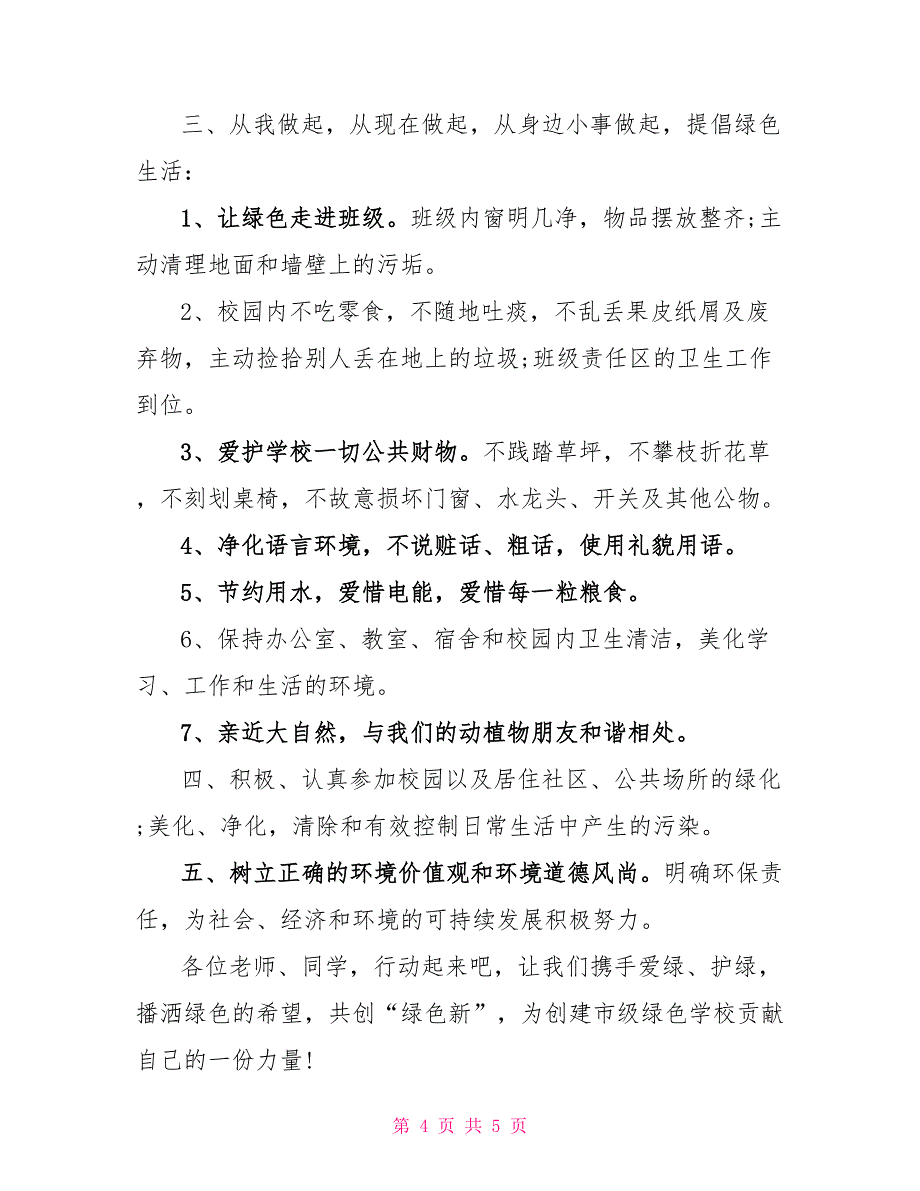 三、从我做起，从现在做起，从身边小事做起，提倡绿色
生活：
1、让绿色走进班级。班级内窗明几净，物品摆放整齐;主
动清理地面和墙壁上的污垢。
2、校园内不吃零食，不随地吐痰，不乱丢果皮纸屑及废
弃物，主动捡拾别人丢在地上的垃圾;班级责任区的卫生工作
到位。
3、爱护学校一切公共财物。不践踏草坪，不攀枝折花草
，不刻划桌椅，不故意损坏门窗、水龙头、开关及其他公物。
4、净化语言环境，不说赃话、粗话，使用礼貌用语。
5、节约用水，爱惜电能，爱惜每一粒粮食。
6、保持办公室、教室、宿舍和校园内卫生清洁，美化学
习、工作和生活的环境。
7、亲近大自然，与我们的动植物朋友和谐相处。
四、积极、认真参加校园以及居住社区、公共场所的绿化
;美化、净化，清除和有效控制日常生活中产生的污染。
五、树立正确的环境价值观和环境道德风尚。明确环保责
任，为社会、经济和环境的可持续发展积极努力。
各位老师、同学，行动起来吧，让我们携手爱绿、护绿，
播洒绿色的希望，共创“绿色新”，为创建市级绿色学校贡献
自己的一份力量!
第 4 页 共 5 页